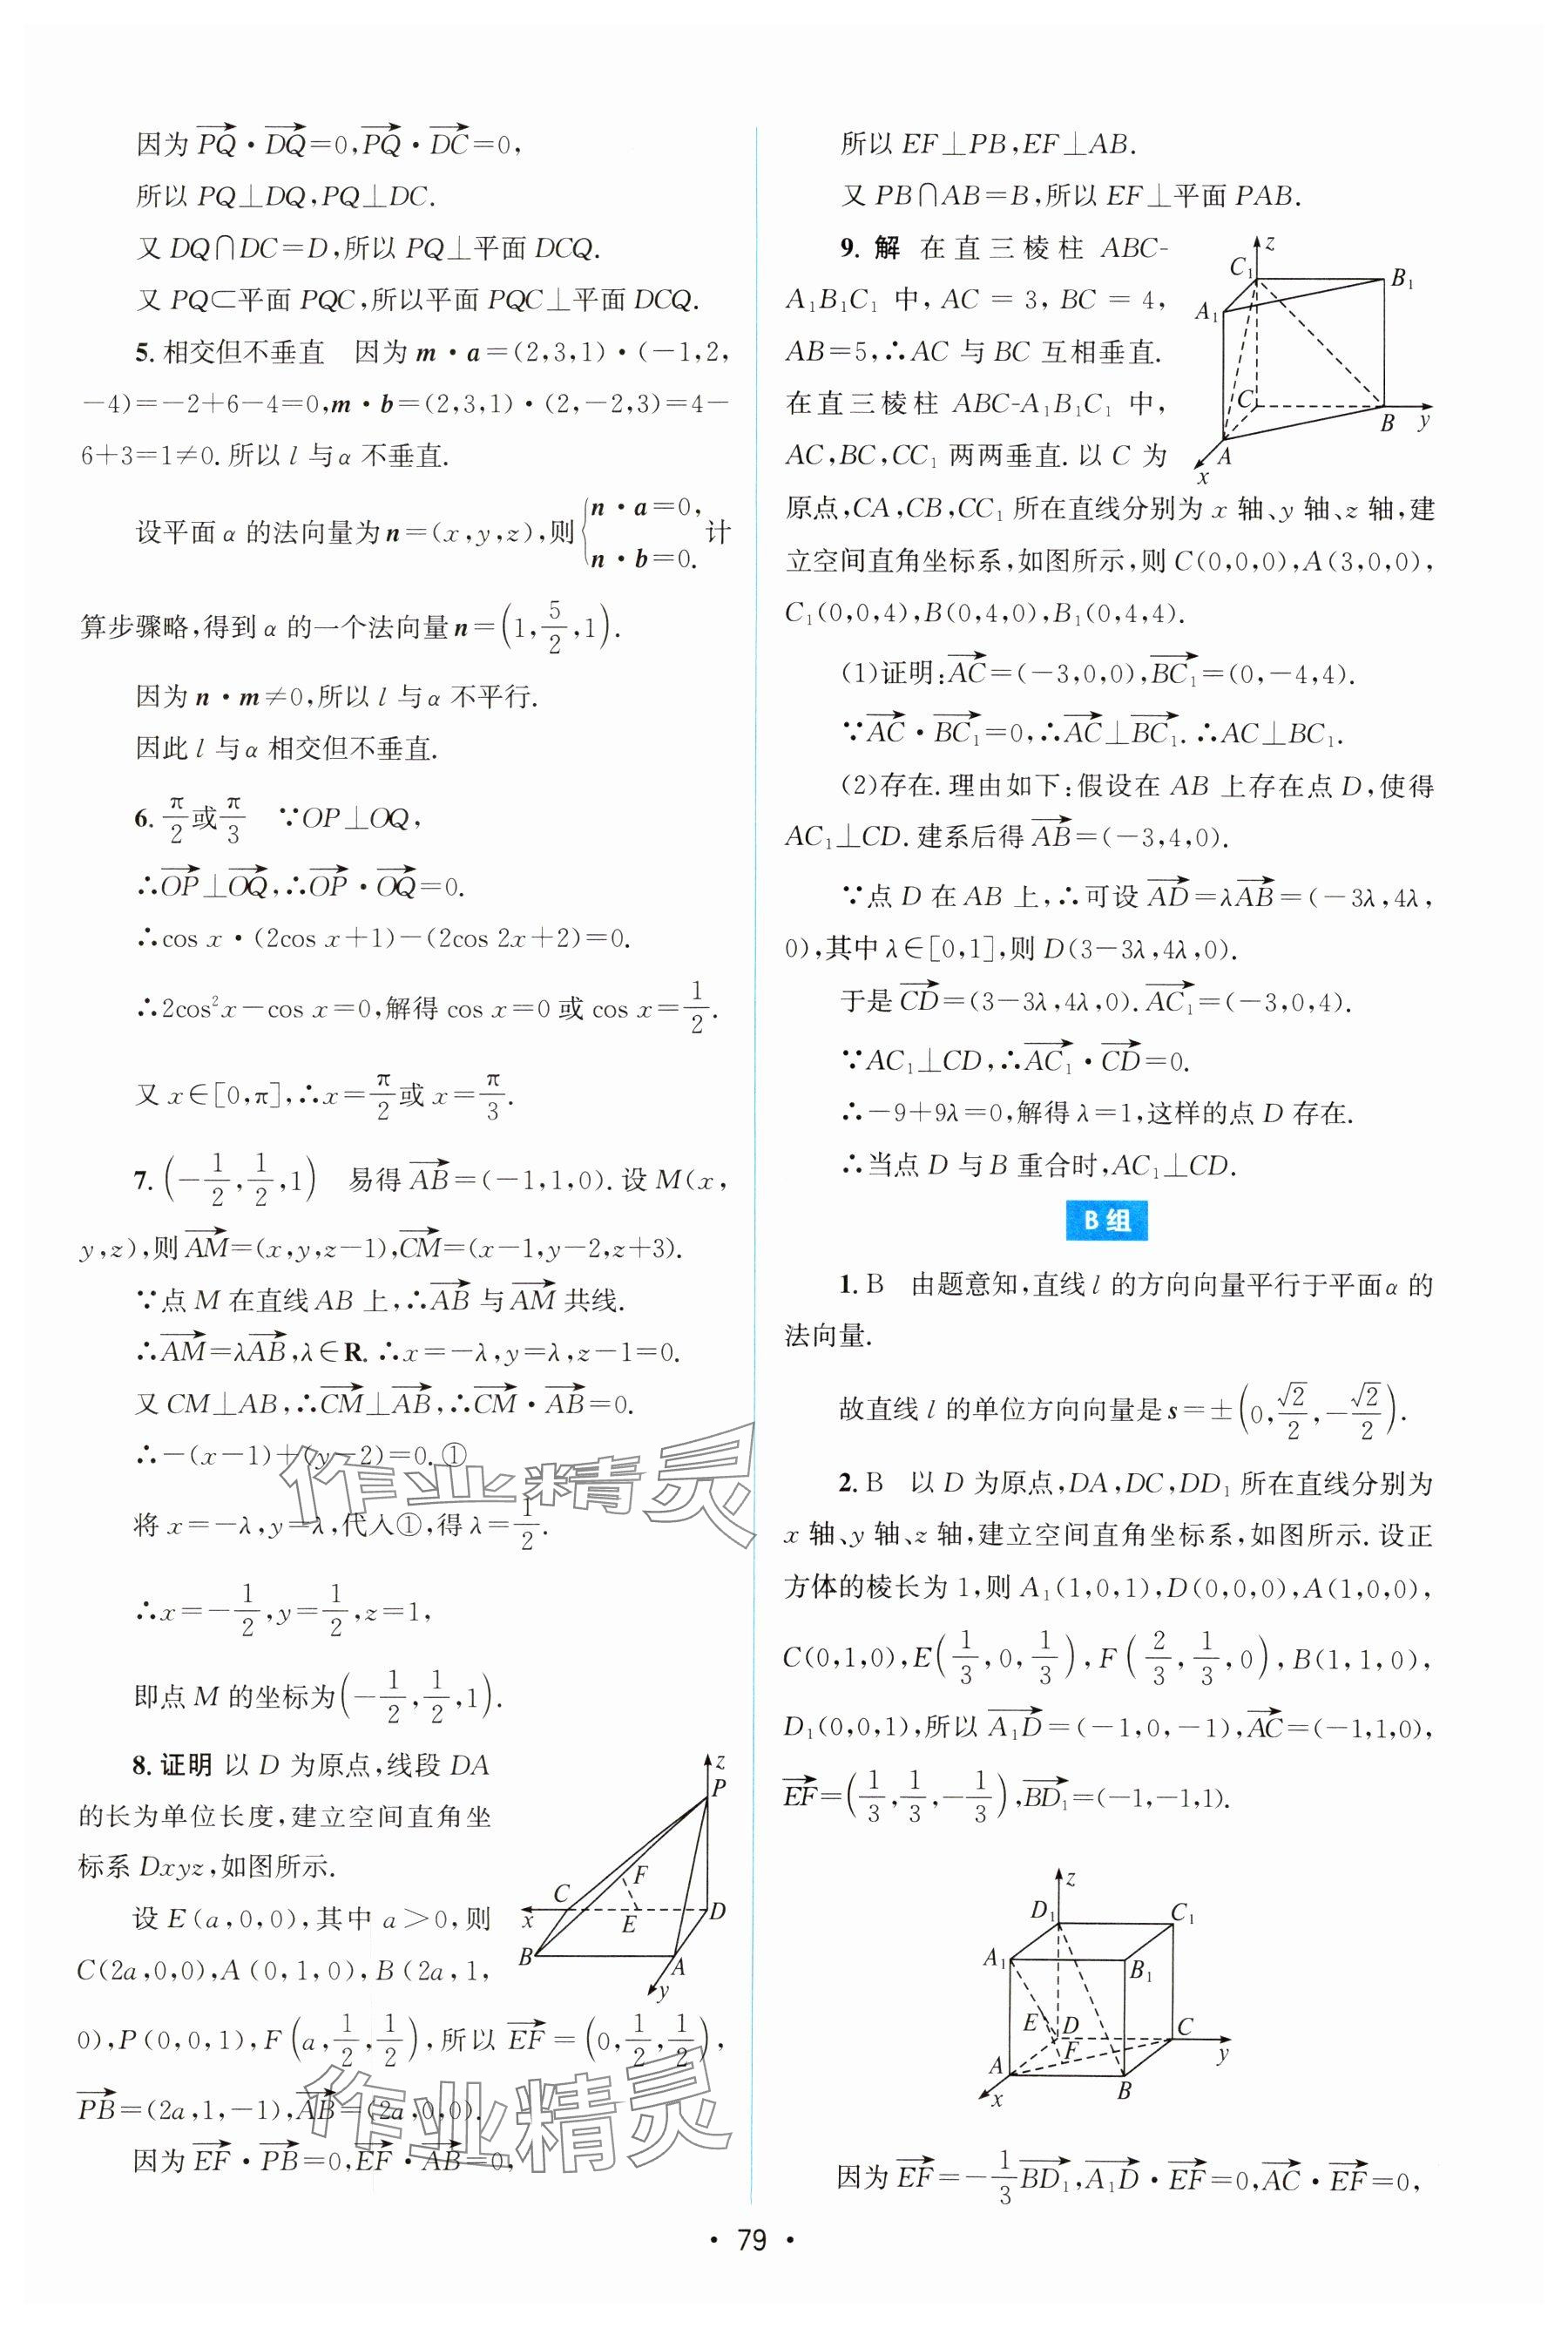 因为$\overrightarrow{PQ}$・$\overrightarrow{DQ}$=0,$\overrightarrow{PQ}$・$\overrightarrow{DC}$=0,
所以 PQ⊥DQ,PQ⊥DC.
又 DQ∩DC=D,所以 PQ⊥平面 DCQ.
又 PQ⊂平面 PQC,所以平面 PQC⊥平面 DCQ.
5. 相交但不垂直　因为 m・a=(2,3,1)・(-1,2,
-4)=-2+6-4=0,m・b=(2,3,1)・(2,-2,3)=4-
6+3=1≠0.所以 l 与α 不垂直.
设平面 α 的法向量为 n=(x,y,z),则$\begin{cases}n・a=0,\\n・b=0.\end{cases}$计
算步骤略,得到 α 的一个法向量 n=$\left(1,\frac{5}{2},1\right)$.
因为 n・m≠0,所以 l 与 α 不平行.
因此 l 与 α 相交但不垂直.
6. $\frac{π}{2}$或$\frac{π}{3}$　∵OP⊥OQ,
∴$\overrightarrow{OP}$⊥$\overrightarrow{OQ}$,∴$\overrightarrow{OP}$・$\overrightarrow{OQ}$=0.
∴cos x・(2cos x+1)-(2cos 2x+2)=0.
∴2cos²x-cos x=0,解得 cos x=0 或 cos x=$\frac{1}{2}$.
又 x∈[0,π],∴x=$\frac{π}{2}$或 x=$\frac{π}{3}$.
7. $\left(-\frac{1}{2},\frac{1}{2},1\right)$　易得$\overrightarrow{AB}$=(-1,1,0).设 M(x,
y,z),则$\overrightarrow{AM}$=(x,y,z-1),$\overrightarrow{CM}$=(x-1,y-2,z+3).
∵点 M 在直线 AB 上,∴$\overrightarrow{AB}$与$\overrightarrow{AM}$共线.
∴$\overrightarrow{AM}$=λ$\overrightarrow{AB}$,λ∈R. ∴x=-λ,y=λ,z-1=0.
又 CM⊥AB,∴$\overrightarrow{CM}$⊥$\overrightarrow{AB}$,∴$\overrightarrow{CM}$・$\overrightarrow{AB}$=0.
∴-(x-1)+(y-2)=0.①
将 x=-λ,y=λ,代入①,得 λ=$\frac{1}{2}$.
∴x=-$\frac{1}{2}$,y=$\frac{1}{2}$,z=1,
即点 M 的坐标为$\left(-\frac{1}{2},\frac{1}{2},1\right)$.
8. 证明 以 D 为原点,线段 DA
的长为单位长度,建立空间直角坐
标系 Dxyz,如图所示.
设 E(a,0,0),其中 a>0,则
C(2a,0,0),A(0,1,0),B(2a,1,
0),P(0,0,1),F$\left(a,\frac{1}{2},\frac{1}{2}\right)$,所以$\overrightarrow{EF}$=$\left(0,\frac{1}{2},\frac{1}{2}\right)$,
$\overrightarrow{PB}$=(2a,1,-1),$\overrightarrow{AB}$=(2a,0,0).
因为$\overrightarrow{EF}$・$\overrightarrow{PB}$=0,$\overrightarrow{EF}$・$\overrightarrow{AB}$=0,
z
P
F
C
x
E
D
B
A
y
作业精灵
作业精灵
所以 EF⊥PB,EF⊥AB.
又 PB∩AB=B,所以 EF⊥平面 PAB.
9. 解 在直三棱柱 ABC-
A₁B₁C₁ 中, AC = 3, BC = 4,
AB=5,∴AC 与 BC 互相垂直.
在直三棱柱 ABC-A₁B₁C₁ 中,
AC,BC,CC₁ 两两垂直.以 C 为
原点,CA,CB,CC₁ 所在直线分别为 x 轴、y 轴、z 轴,建
立空间直角坐标系,如图所示,则 C(0,0,0),A(3,0,0),
C₁(0,0,4),B(0,4,0),B₁(0,4,4).
z
C₁
B₁
A₁
C
B
y
A
x
(1)证明:$\overrightarrow{AC}$=(-3,0,0),$\overrightarrow{BC_1}$=(0,-4,4).
∵$\overrightarrow{AC}$・$\overrightarrow{BC_1}$=0,∴$\overrightarrow{AC}$⊥$\overrightarrow{BC_1}$.∴AC⊥BC₁.
(2)存在.理由如下:假设在 AB 上存在点 D,使得
AC₁⊥CD.建系后得$\overrightarrow{AB}$=(-3,4,0).
∵点 D 在 AB 上,∴可设$\overrightarrow{AD}$=λ$\overrightarrow{AB}$=(-3λ,4λ,
0),其中 λ∈[0,1],则 D(3-3λ,4λ,0).
于是$\overrightarrow{CD}$=(3-3λ,4λ,0).$\overrightarrow{AC_1}$=(-3,0,4).
∵AC₁⊥CD,∴$\overrightarrow{AC_1}$・$\overrightarrow{CD}$=0.
∴-9+9λ=0,解得 λ=1,这样的点 D 存在.
∴当点 D 与 B 重合时,AC₁⊥CD.
B 组
1. B　由题意知,直线 l 的方向向量平行于平面 α 的
法向量.
故直线 l 的单位方向向量是 s=±$\left(0,\frac{\sqrt{2}}{2},-\frac{\sqrt{2}}{2}\right)$.
2. B　以 D 为原点,DA,DC,DD₁ 所在直线分别为
x 轴、y 轴、z 轴,建立空间直角坐标系,如图所示.设正
方体的棱长为 1,则 A₁(1,0,1),D(0,0,0),A(1,0,0),
C(0,1,0),E$\left(\frac{1}{3},0,\frac{1}{3}\right)$,F$\left(\frac{2}{3},\frac{1}{3},0\right)$,B(1,1,0),
D₁(0,0,1),所以$\overrightarrow{A_1D}$=(-1,0,-1),$\overrightarrow{AC}$=(-1,1,0),
$\overrightarrow{EF}$=$\left(\frac{1}{3},\frac{1}{3},-\frac{1}{3}\right)$,$\overrightarrow{BD_1}$=(-1,-1,1).
z
D₁
C₁
A₁
B₁
E
D
C
F
y
A
B
x
因为$\overrightarrow{EF}$=-$\frac{1}{3}$$\overrightarrow{BD_1}$,$\overrightarrow{A_1D}$・$\overrightarrow{EF}$=0,$\overrightarrow{AC}$・$\overrightarrow{EF}$=0,
・79・